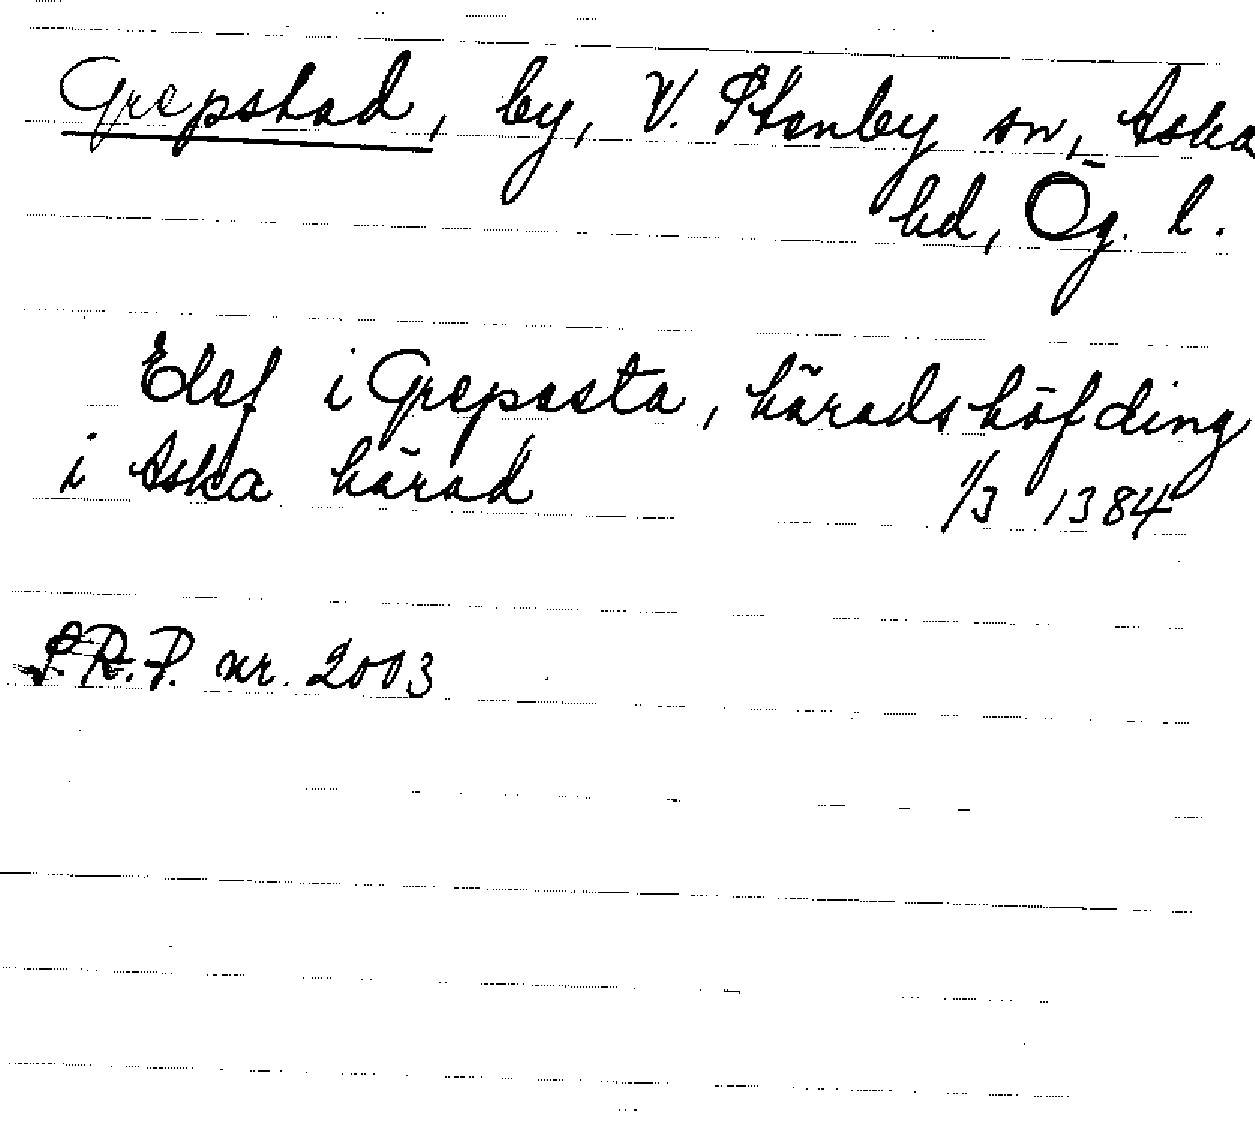 Grepstad, by, V. Stenby sn, Aska
hd, Ög. l.
Elef i Grepsta, häradshöfding
i Aska härad 1/3 1384
S.R.P. nr. 2003